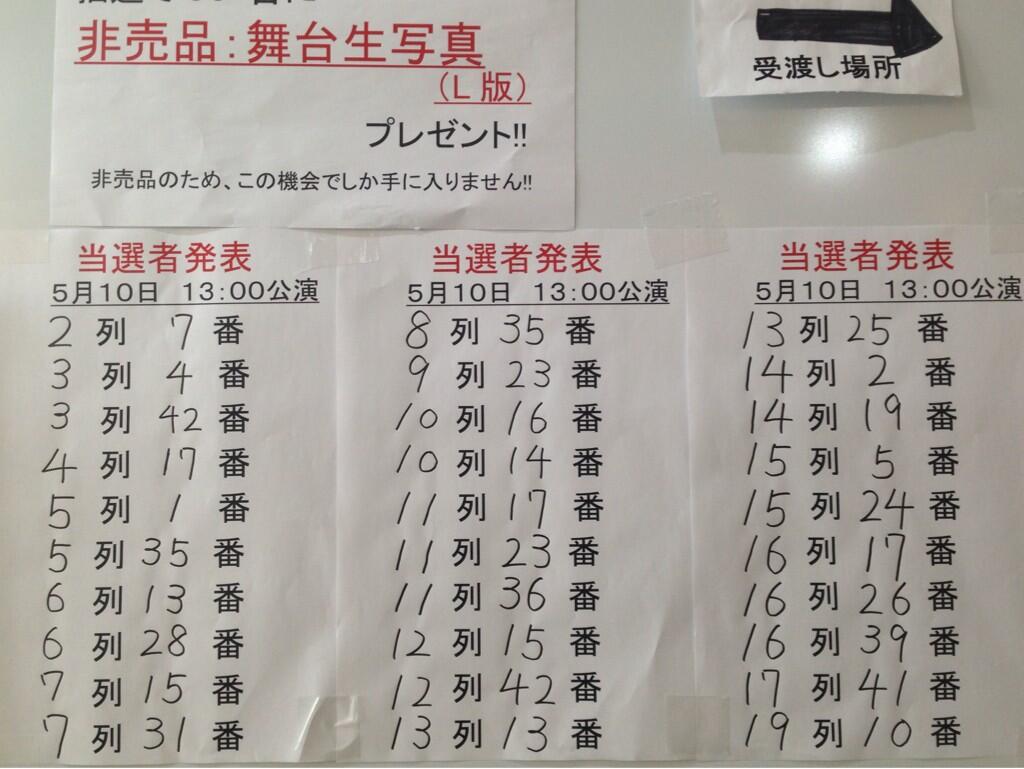 非売品:舞台生写真
(L版)
プレゼント!!
非売品のため、この機会でしか手に入りません!!
受渡し場所
当選者発表
5月10日 13:00公演
2列7番
3列4番
3列42番
4列17番
5列1番
5列35番
6列13番
6列28番
7列15番
7列31番
当選者発表
5月10日 13:00公演
8列35番
9列23番
10列16番
10列14番
11列17番
11列23番
11列36番
12列15番
12列42番
13列13番
当選者発表
5月10日 13:00公演
13列25番
14列2番
14列19番
15列5番
15列24番
16列17番
16列26番
16列39番
17列41番
19列10番